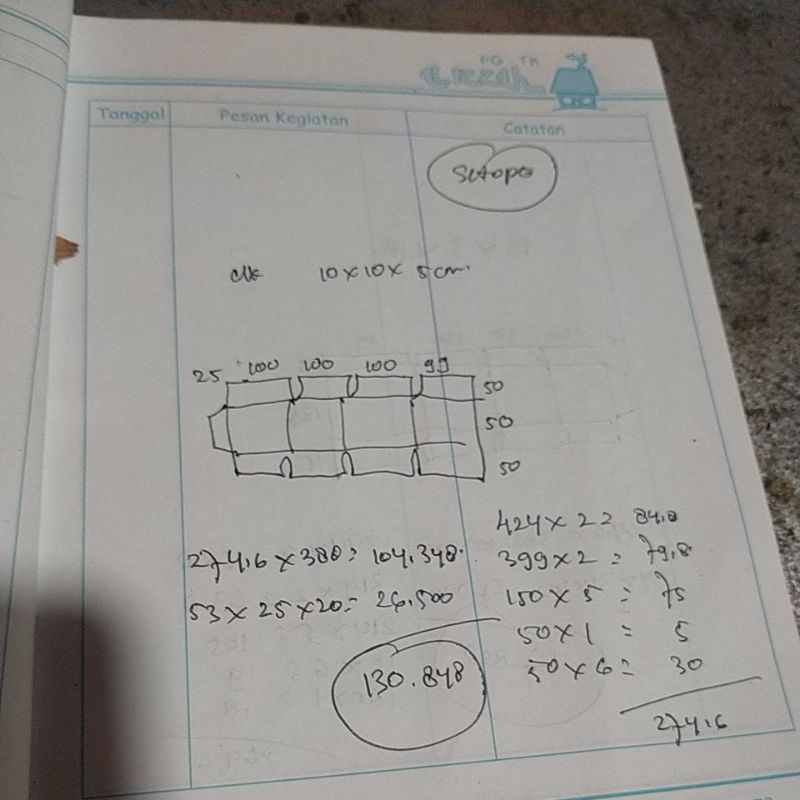 PG TK
Tanggal Pesan Kegiatan Catatan
Sutopo
10 x 10 x 5 cm.
25 100 100 100 99
50
50
50
424 x 2 = 84,8
274,6 x 380 = 104.348.
399 x 2 = 79,8
53 x 25 x 20 = 26.500
150 x 5 = 75
50 x 1 = 5
130.848
50 x 6 = 30
274,6